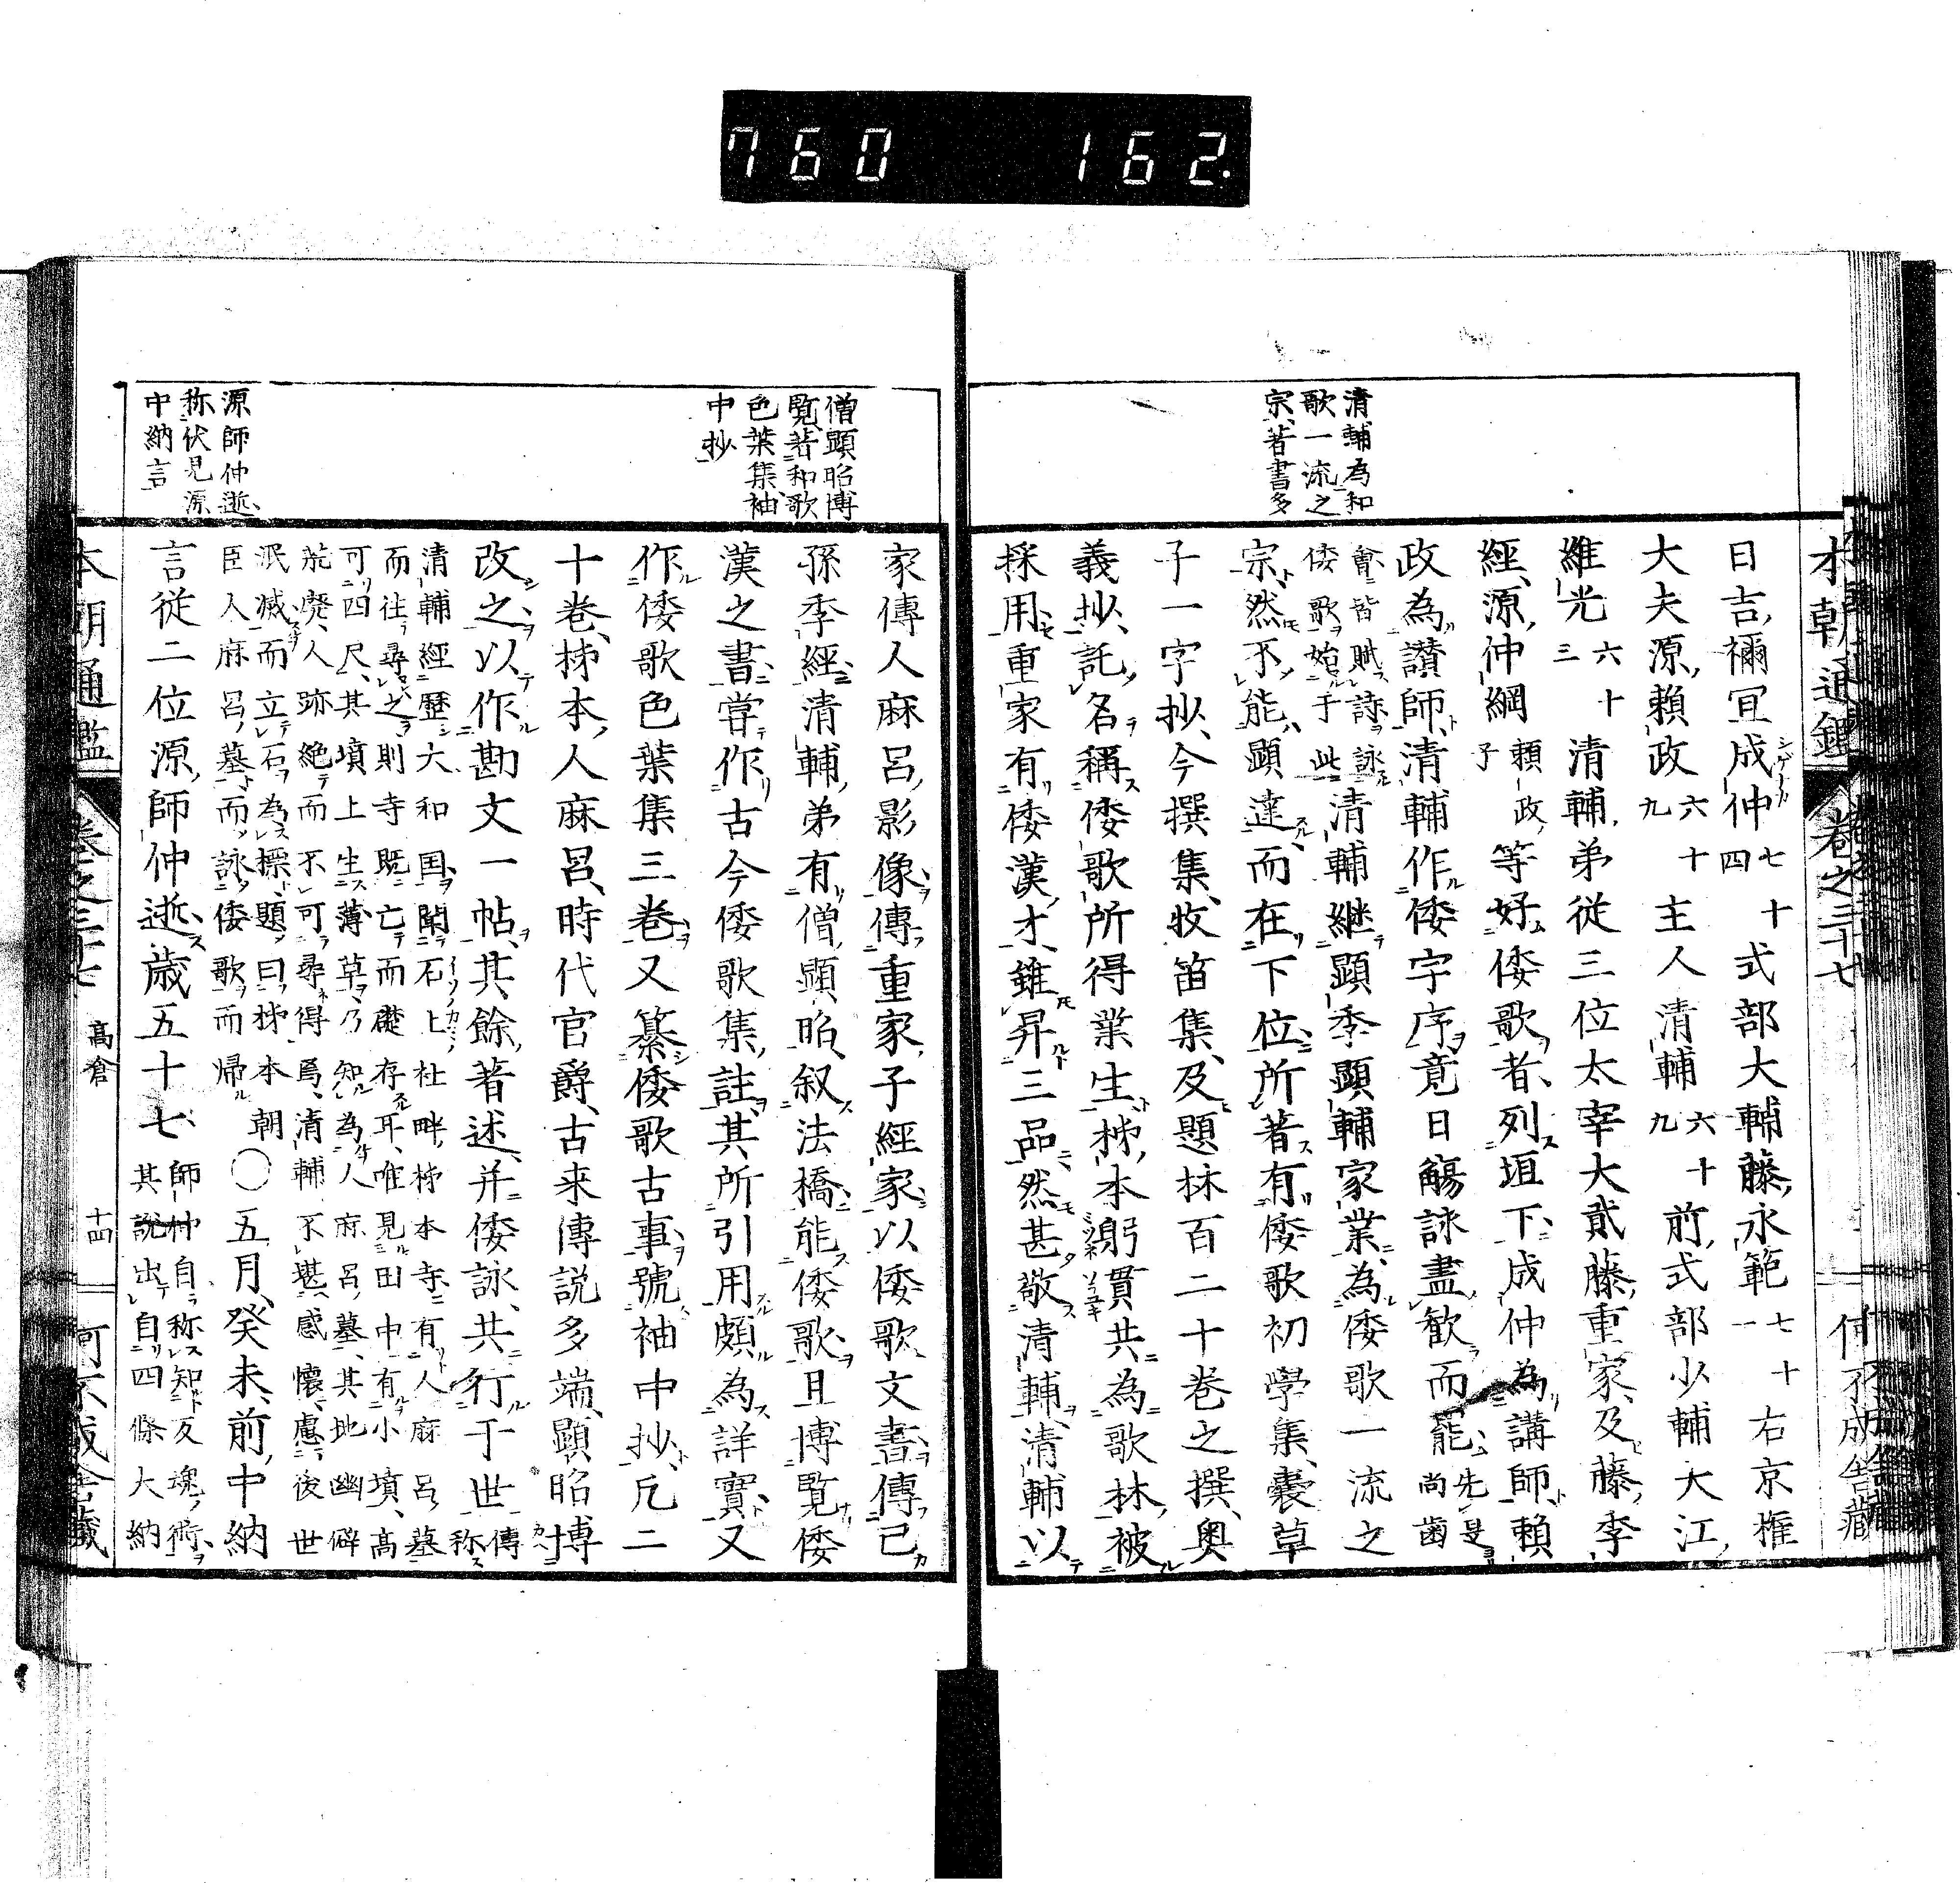 760 162.
清輔為和
歌一流之
宗著書多
本朝通鑑 卷之三十七 何不成舎藏
日吉禰宜成仲七十四式部大輔藤永範七十一右京權
大夫源頼政六十九主人清輔六十九前式部少輔大江
維光六十三清輔弟從三位太宰大貳藤重家及藤季
經源仲綱頼政子等好倭歌者列垣下成仲為講師頼
政為讃師清輔作倭字序竟日觴詠盡歓而罷先是尚齒
會皆賦詩詠倭歌始于此清輔継顕季顕輔家業為倭歌一流之
宗然不能顕達而在下位所著有倭歌初學集嚢草
子一字抄今撰集牧笛集及題林百二十巻之撰奥
義抄託名稱倭歌所得業生柹本躬貫共為歌林被
採用重家有倭漢才雖昇三品然甚敬清輔清輔以
僧顕昭博
覧著和歌
色葉集袖
中抄
源師仲逝
称伏見源
中納言
家傳人麻呂影像傳重家子經家以倭歌文書傳己
孫季經清輔弟有僧顕昭叙法橋能倭歌且博覧倭
漢之書嘗作古今倭歌集註其所引用頗為詳實又
作倭歌色葉集三巻又纂倭歌古事號袖中抄凡二
十巻柹本人麻呂時代官爵古来傳説多端顕昭博
改之以作勘文一帖其餘著述并倭詠共行于世傳称
清輔經歴大和国聞石上社畔柹本寺有人麻呂墓
而往尋之則寺既亡而礎存耳唯見田中有小墳高
可四尺其墳上生薄草乃知為人麻呂墓其地幽僻
荒癈人跡絶而不可尋得焉清輔不堪感懐慮後世
泯滅而立石為標題曰柹本朝
臣人麻呂墓而詠倭歌而帰〇五月癸未前中納
言従二位源師仲逝歳五十七師仲自称知反魂術其説出自四條大納
本朝通鑑 卷之三十七 高倉 十四 何不成舎藏